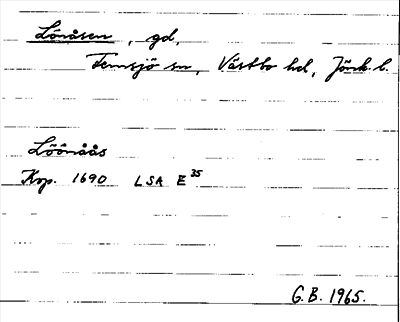 Lönåsen, gd,
Femsjö sn, Västbo hd, Jönk. l.
Löönåås
Kop. 1690 LSA E 35
G.B. 1965.